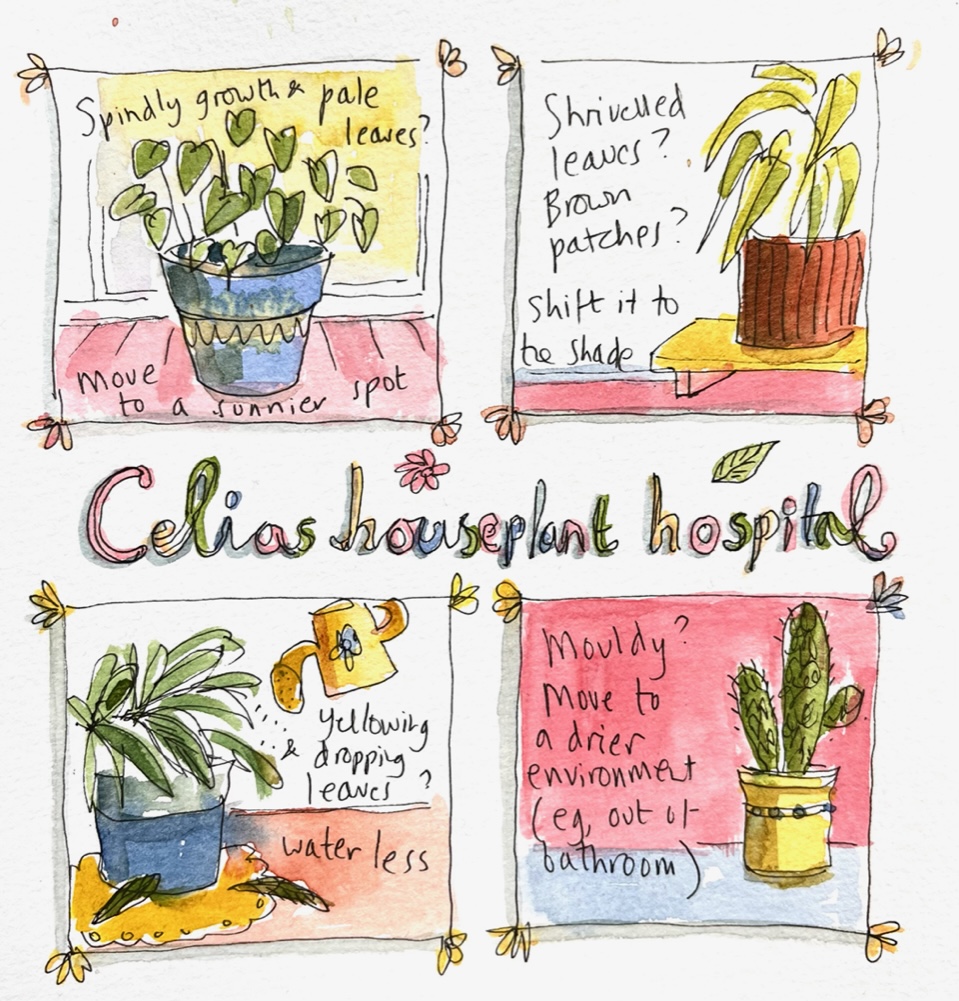 Spindly growth & pale
leaves?
move
to a sunnier spot
Shrivelled
leaves?
Brown
patches?
shift it to
the shade
Celias houseplant hospital
yellowing
& dropping
leaves?
water less
Mouldy?
Move to
a drier
environment
(eg, out of
bathroom)